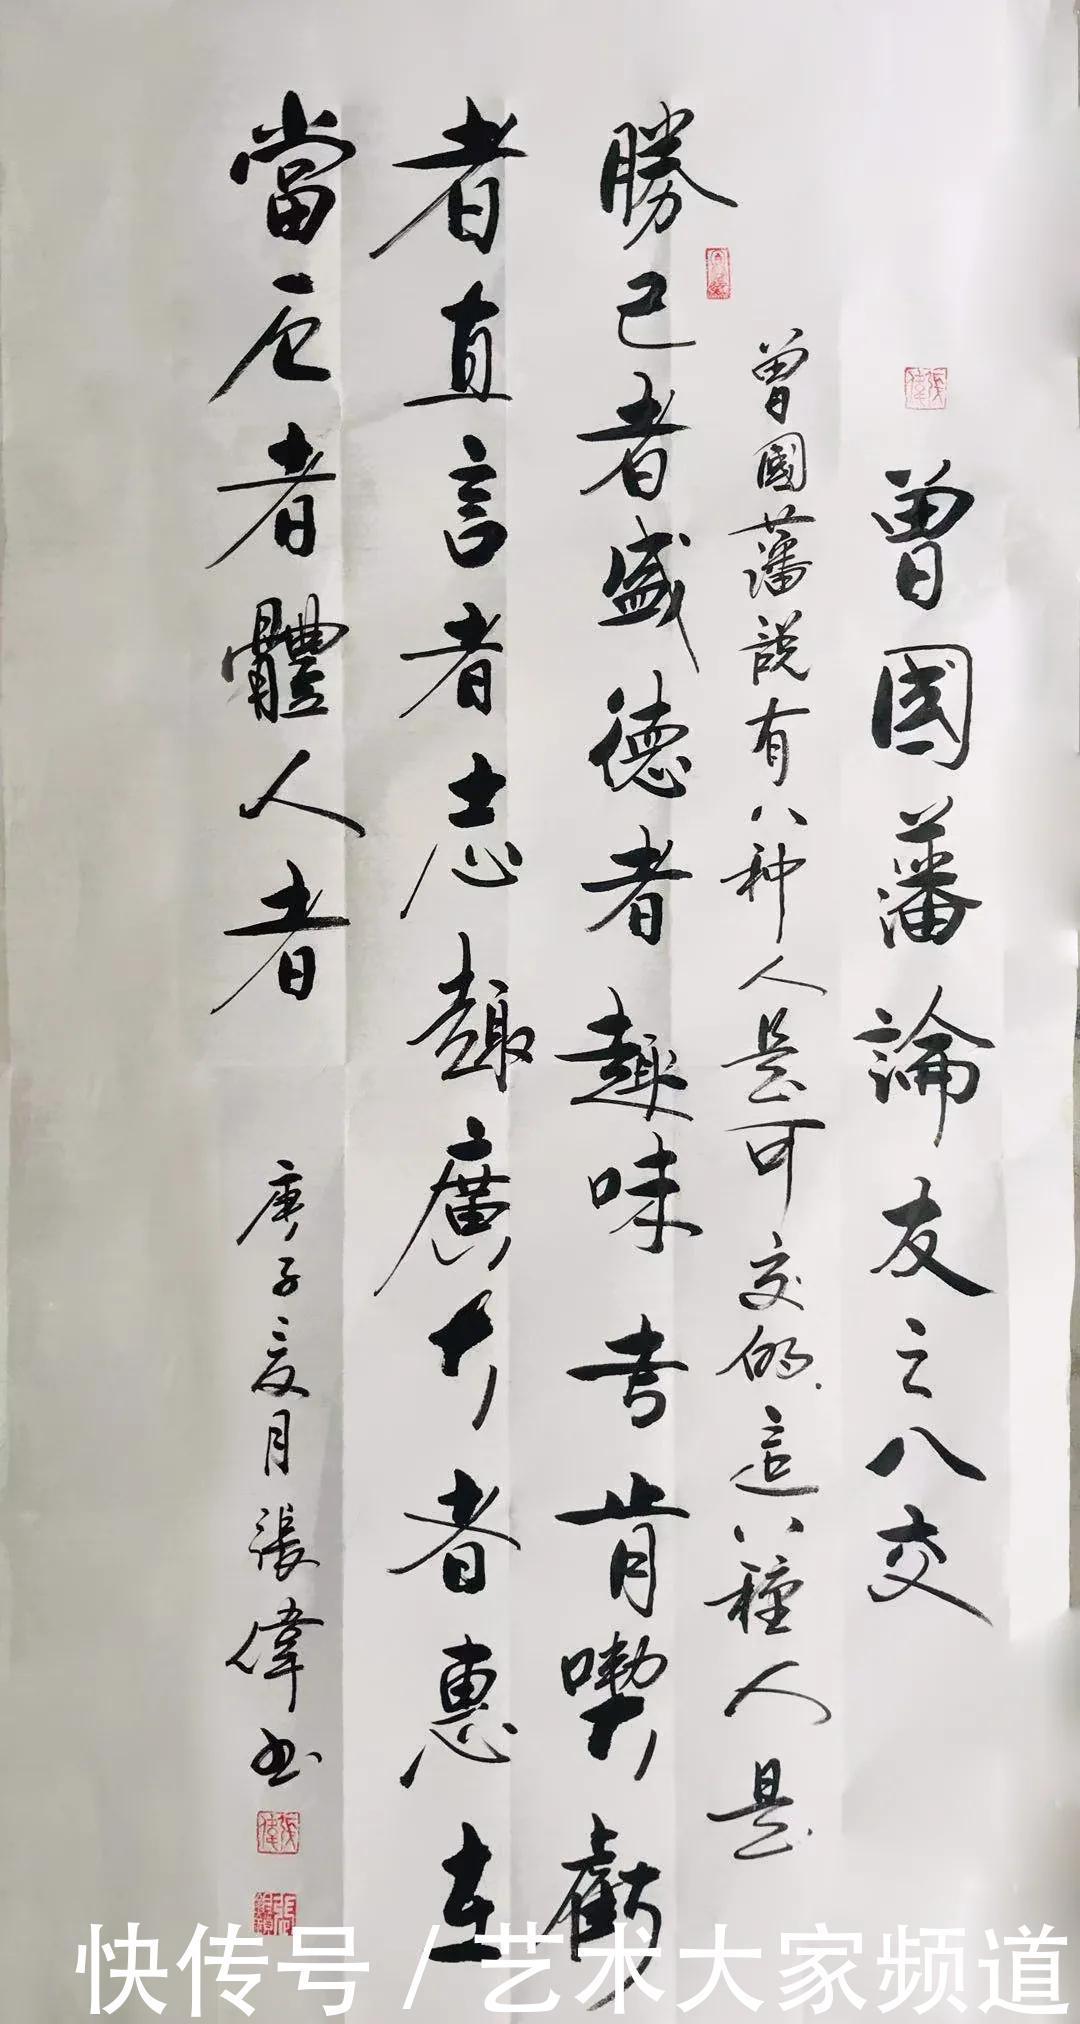 曾國藩論友之八交
曾國藩說有八种人是可交的.這八種人是
勝己者盛德者趣味者肯喫虧
者直言者志趣廣大者惠在
當厄者體人者
庚子夏月張偉书
張偉
張偉
快传号 / 艺术大家频道